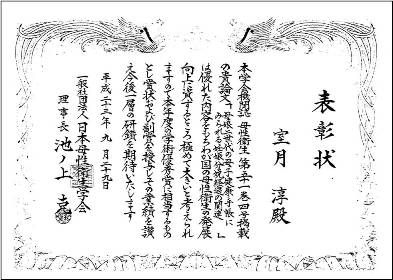 表彰状
室月 淳殿
本学会機関誌母性衛生第五十一巻四号掲載
の貴論文「母娘二世代の母子健康手帳に
みられる妊娠分娩経過の関連」
は優れた内容をもちわが国の母性衛生の発展
向上に資するところ極めて大きいと考えられ
ますので本年度の学術優秀賞に相当するもの
とし賞状および副賞を授与しその業績を讃
え今後一層の研鑽を期待いたします
平成二十三年 九月二十九日
一般社団法人日本母性衛生学会
理事長 池ノ上 克